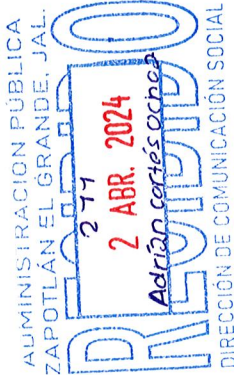 ADMINISTRACIÓN PÚBLICA
ZAPOTLÁN EL GRANDE, JAL.
RECIBIDO
2 ABR. 2024
Adrián cortés ochoa
DIRECCIÓN DE COMUNICACIÓN SOCIAL